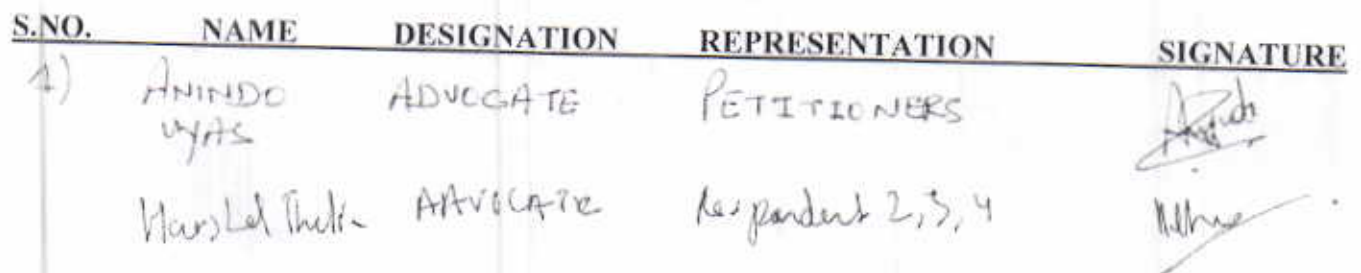 S.NO. NAME DESIGNATION REPRESENTATION SIGNATURE
1) ANINDO ADVOCATE PETITIONERS
VYAS
Harshal ADVOCATE Respondent 2, 3, 4